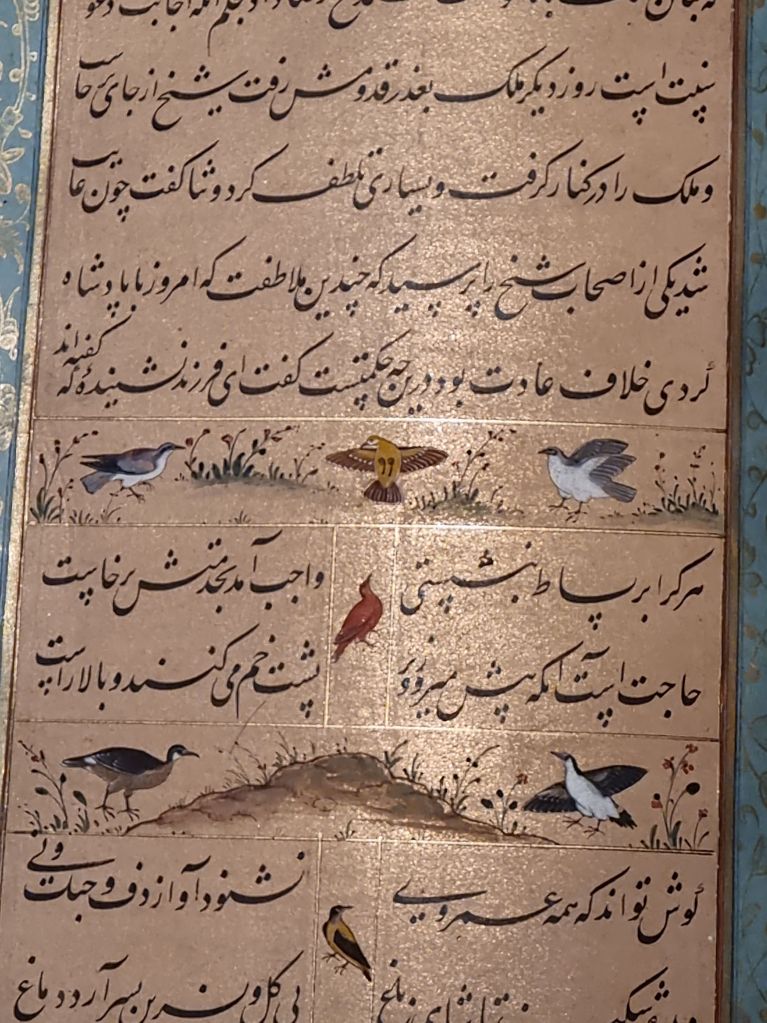 اجابت دعو
سنت است روز دیگر ملک بعذر قدومش رفت شیخ از جای خاست
و ملک را در کنار گرفت و بسیاری تلطف کرد و ثنا گفت چون غایب
شد یکی از اصحاب شیخ را پرسید که چندین ملاطفت که امروز با پادشاه
کردی خلاف عادت بود درین چه حکمتست گفت ای فرزند نشنیدهٔ که گفته اند
هر کرا بر بساط بنشستی واجب آمد بخدمتش برخاست
حاجت است آنکه پیش میر و وزیر پشت خم می کنند و بالا راست
گوش تواند که همه عمر وی نشنود آواز دف و چنگ و نی
دیده شکیبد ز تماشای باغ بی گل و نسرین بسر آرد دماغ